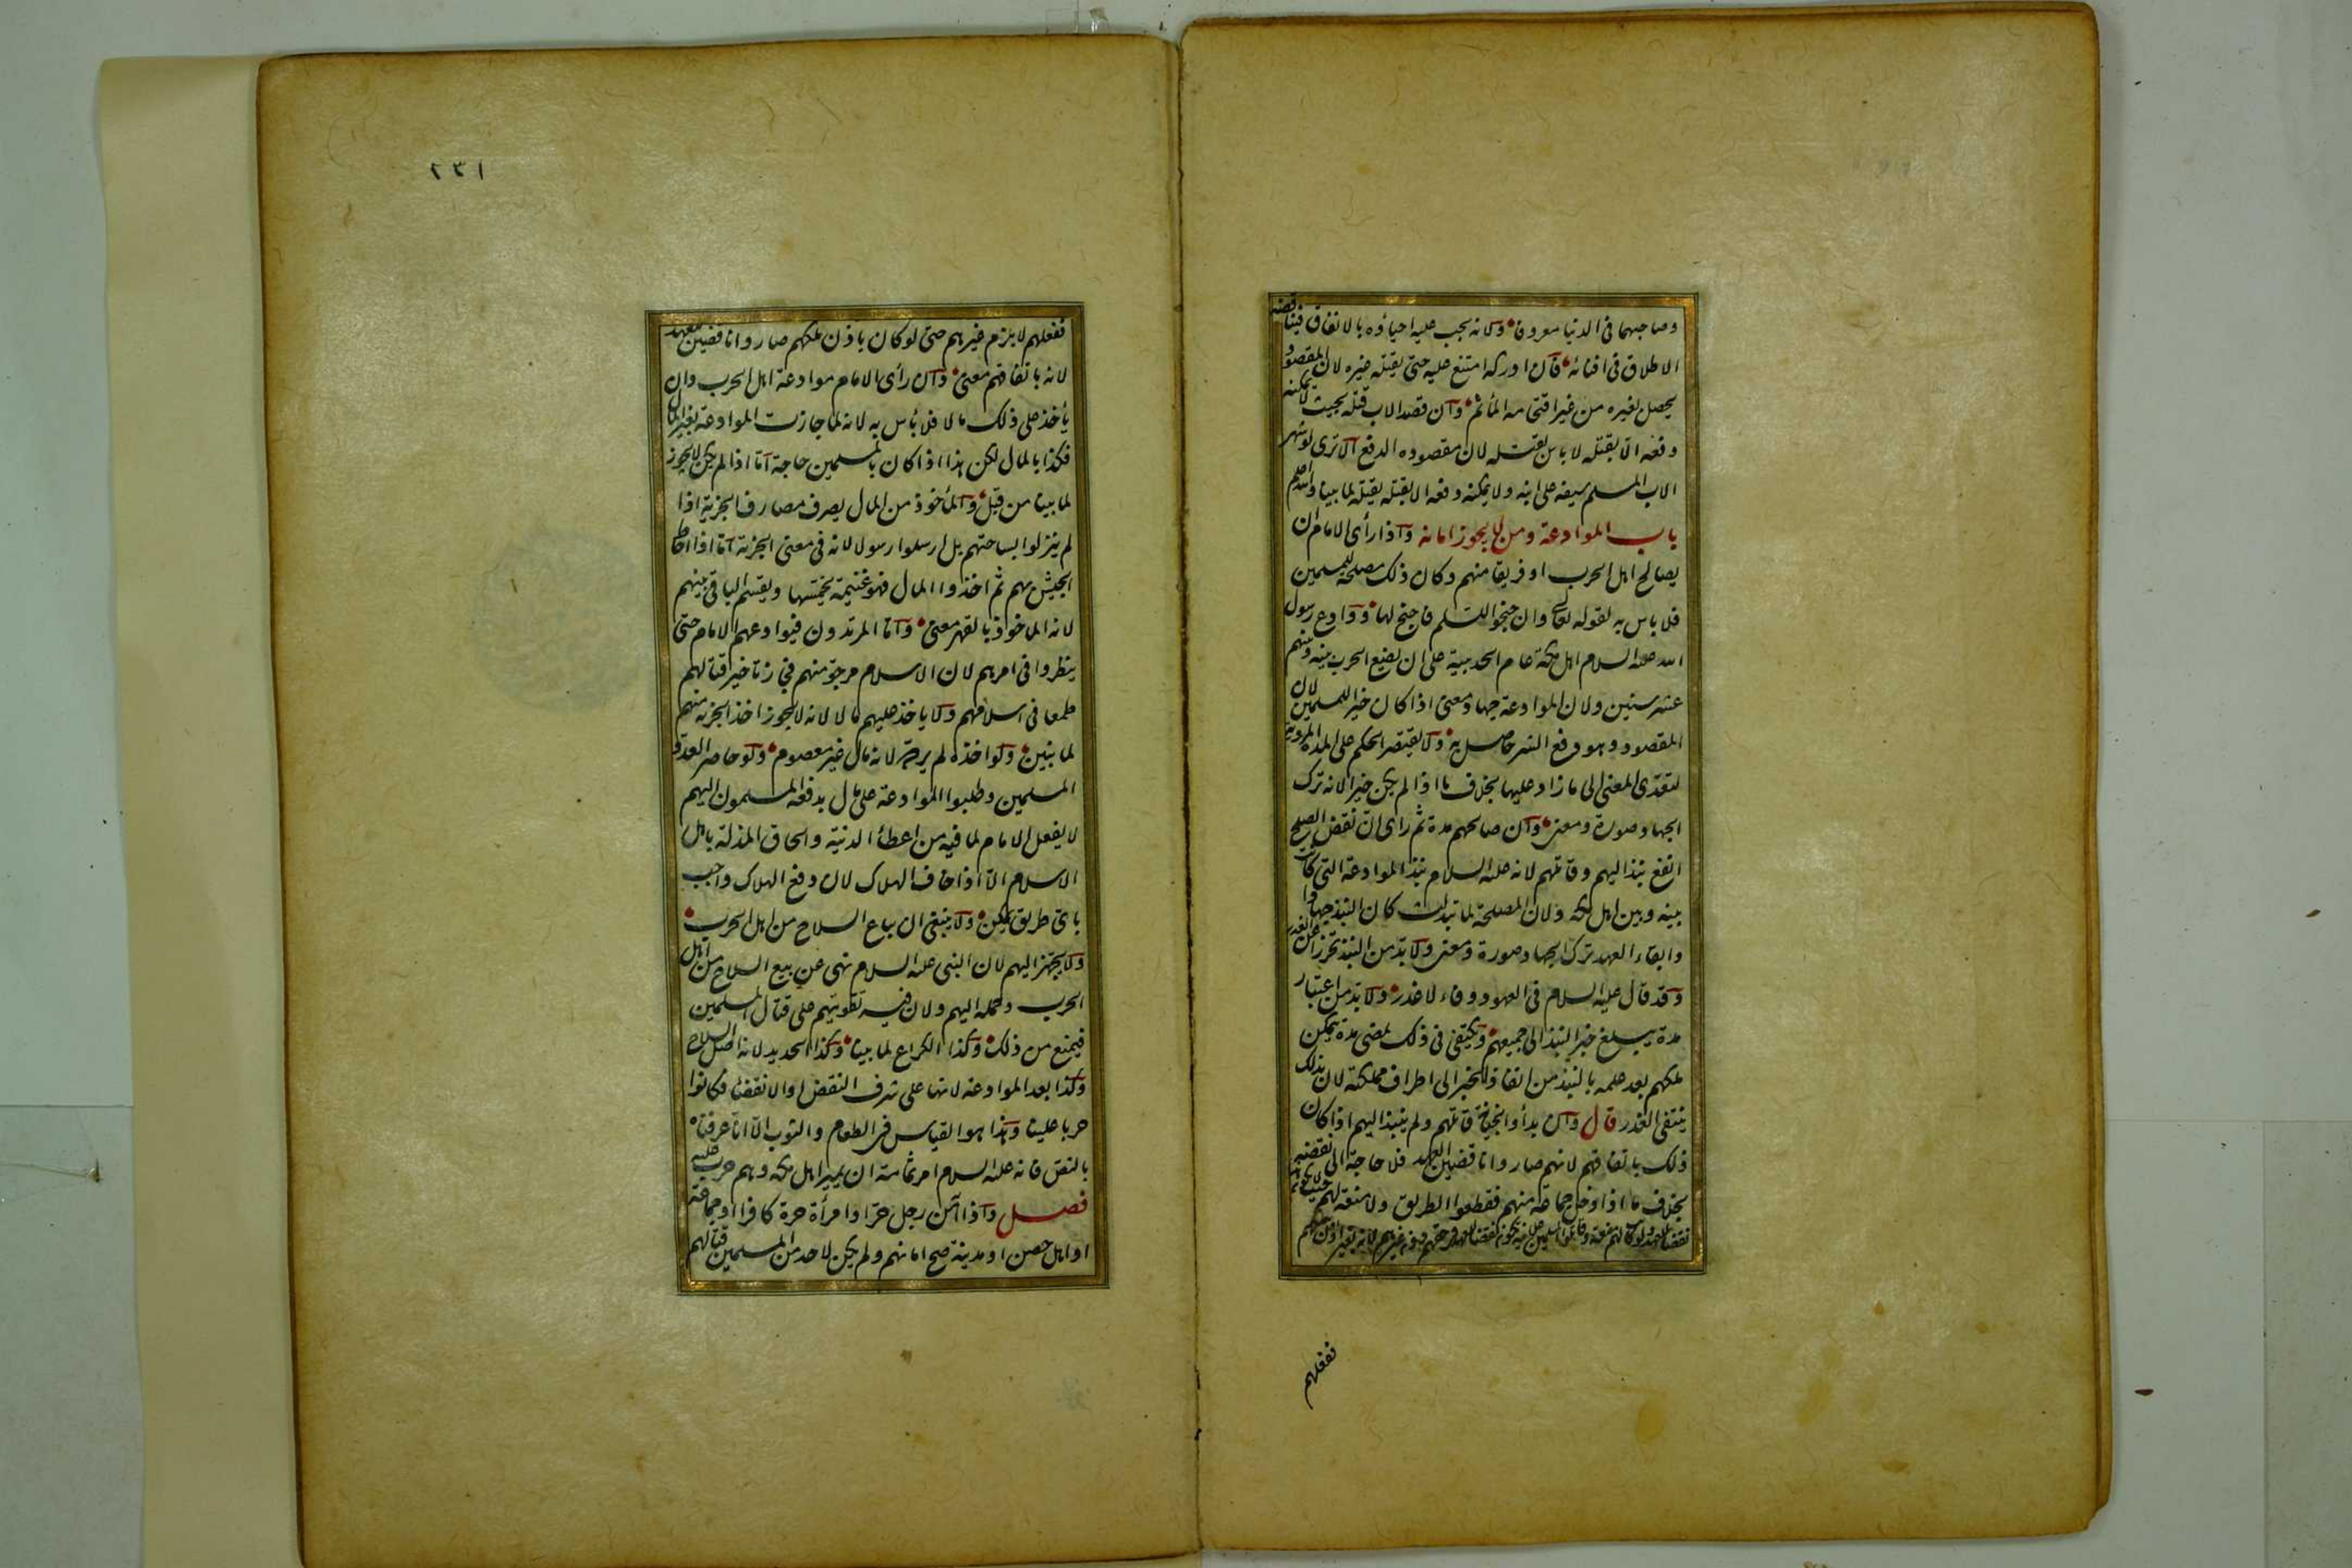 وصاحبهما في الدنيا معروفا ولانه يجب عليه احياؤه بالانفاق فيناقضه
الاطلاق في افنائه فان ادركه امتنع عليه حتى يقتله غيره لان المقصود
يحصل بغيره من غير اقتحامه المأثم وان قصد الاب قتله بحيث لا يمكنه
دفعه الا بقتله لا باس بقتله لان مقصوده الدفع الا ترى لو شهر
الاب المسلم سيفه على ابنه ولا يمكنه دفعه الا بقتله يقتله لما بينا والله اعلم
باب الموادعة ومن لا يجوز امانه واذا رأى الامام ان
يصالح اهل الحرب او فريقا منهم وكان ذلك مصلحة للمسلمين
فلا باس به لقوله تعالى وان جنحوا للسلم فاجنح لها ووادع رسول
الله عليه السلام اهل مكة عام الحديبية على ان يضع الحرب بينه وبينهم
عشر سنين ولان الموادعة جهاد معنى اذا كان خيرا للمسلمين لان
المقصود وهو دفع الشر حاصل به ولا يقتصر الحكم على المدة المروية
لتعدى المعنى الى ما زاد عليها بخلاف ما اذا لم يكن خيرا لانه ترك
الجهاد صورة ومعنى وان صالحهم مدة ثم رأى ان نقض الصلح
انفع نبذ اليهم وقاتلهم لانه عليه السلام نبذ الموادعة التي كانت
بينه وبين اهل مكة ولان المصلحة لما تبدلت كان النبذ جهادا
وابقاء العهد ترك الجهاد صورة ومعنى ولا بد من النبذ تحرزا عن الغدر
وقد قال عليه السلام في العهود وفاء لا غدر ولا بد من اعتبار
مدة يبلغ خبر النبذ الى جميعهم ويكتفى في ذلك بمضى مدة يتمكن
ملكهم بعد علمه بالنبذ من انفاذ الخبر الى اطراف مملكته لان بذلك
ينتفى الغدر قال وان بدأوا بخيانة قاتلهم ولم ينبذ اليهم اذا كان
ذلك باتفاقهم لانهم صاروا ناقضين العهد فلا حاجة الى نقضه
بخلاف ما اذا دخل جماعة منهم فقطعوا الطريق ولا منعة لهم حيث لا يكون هذا
نقضا للعهد ولو كانت لهم منعة وقاتلوا المسلمين علانية يكون نقضا للعهد في حقهم دون غيرهم لانه بغير اذن ملكهم
ففعلهم
٢٣١
ففعلهم لا يلزم غيرهم حتى لو كان باذن ملكهم صاروا ناقضين للعهد
لانه باتفاقهم معنى وان رأى الامام موادعة اهل الحرب وان
يأخذ على ذلك مالا فلا بأس به لانه لما جازت الموادعة بغير المال
فكذا بالمال لكن هذا اذا كان بالمسلمين حاجة اما اذا لم يكن لا يجوز
لما بينا من قبل والمأخوذ من المال يصرف مصارف الجزية اذا
لم ينزلوا بساحتهم بل ارسلوا رسولا لانه في معنى الجزية اما اذا احاط
الجيش بهم ثم اخذوا المال فهو غنيمة يخمسها ويقسم الباقى بينهم
لانه الماخوذ بالقهر معنى واما المرتدون فيوادعهم الامام حتى
ينظروا في امرهم لان الاسلام مرجو منهم فجاز تاخير قتالهم
طمعا في اسلامهم ولا ياخذ عليهم مالا لانه لا يجوز اخذ الجزية منهم
لما نبين ولو اخذه لم يرده لانه مال غير معصوم ولو حاصر العدو
المسلمين وطلبوا الموادعة على مال يدفعه المسلمون اليهم
لا يفعل الامام لما فيه من اعطاء الدنية والحاق المذلة باهل
الاسلام الا اذا خاف الهلاك لان دفع الهلاك واجب
باى طريق يمكن ولا ينبغى ان يباع السلاح من اهل الحرب
ولا يجهز اليهم لان النبى عليه السلام نهى عن بيع السلاح من اهل
الحرب وحمله اليهم ولان فيه تقويتهم على قتال المسلمين
فيمنع من ذلك وكذا الكراع لما بينا وكذا الحديد لانه اصل السلاح
وكذا بعد الموادعة لانها على شرف النقض او الانقضاء فكانوا
حربا علينا وهذا هو القياس في الطعام والثوب الا انا عرفناه
بالنص فانه عليه السلام امر ثمامة ان يمير اهل مكة وهم حرب عليه
فصل واذا آمن رجل حر او امرأة حرة كافرا او جماعة
او اهل حصن او مدينة صح امانهم ولم يكن لاحد من المسلمين قتالهم